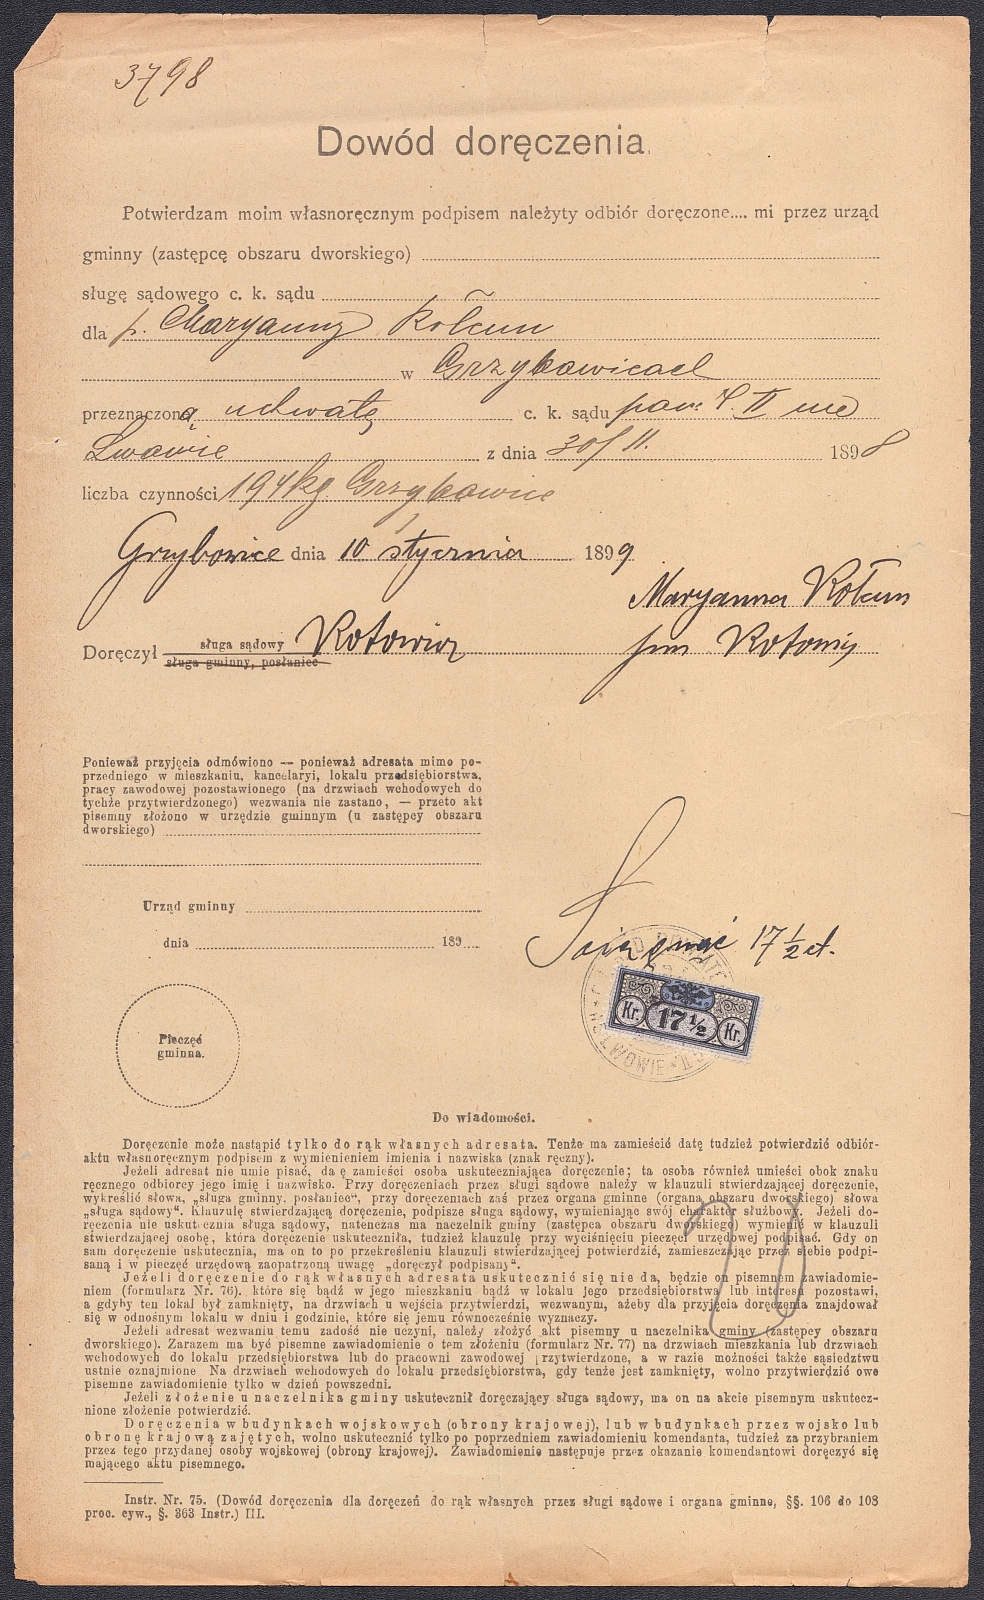 3798
Dowód doręczenia.
Potwierdzam moim własnoręcznym podpisem należyty odbiór doręczone.... mi przez urząd
gminny (zastępcę obszaru dworskiego)
sługę sądowego c. k. sądu
dla p. Maryanny Kołcun
w Grzybowicach
przeznaczoną uchwałę c. k. sądu pow. S. II we
Lwowie z dnia 30/11. 1898
liczba czynności 194 kg. Grzybowice
Grzybowice dnia 10 stycznia 1899
Maryanna Kołcun
Doręczył sługa sądowy Kotowicz
sługa gminny, posłaniec
Ponieważ przyjęcia odmówiono — ponieważ adresata mimo po-
przedniego w mieszkaniu, kancelaryi, lokalu przedsiębiorstwa,
pracy zawodowej pozostawionego (na drzwiach wchodowych do
tychże przytwierdzonego) wezwania nie zastano, — przeto akt
pisemny złożono w urzędzie gminnym (u zastępcy obszaru
dworskiego)
Urząd gminny
dnia 189
17 ½ ct.
Kr. 17 ½ Kr.
WE LWOWIE * II
Pieczęć
gminna.
Do wiadomości.
Doręczenie może nastąpić tylko do rąk własnych adresata. Tenże ma zamieścić datę tudzież potwierdzić odbiór-
aktu własnoręcznym podpisem z wymienieniem imienia i nazwiska (znak ręczny).
Jeżeli adresat nie umie pisać, da ę zamieści osoba uskuteczniająca doręczenie; ta osoba również umieści obok znaku
ręcznego odbiorcy jego imię i nazwisko. Przy doręczeniach przez sługi sądowe należy w klauzuli stwierdzającej doręczenie,
wykreślić słowa, „sługa gminny, posłaniec“, przy doręczeniach zaś przez organa gminne (organa obszaru dworskiego) słowa
„sługa sądowy“. Klauzulę stwierdzającą doręczenie, podpisze sługa sądowy, wymieniając swój charakter służbowy. Jeżeli do-
ręczenia nie uskutecznia sługa sądowy, natenczas ma naczelnik gminy (zastępca obszaru dworskiego) wymienić w klauzuli
stwierdzającej osobę, która doręczenie uskuteczniła, tudzież klauzulę przy wyciśnięciu pieczęci urzędowej podpisać. Gdy on
sam doręczenie uskutecznia, ma on to po przekreśleniu klauzuli stwierdzającej potwierdzić, zamieszczając przez siebie podpi-
saną i w pieczęć urzędową zaopatrzoną uwagę „doręczył podpisany“.
Jeżeli doręczenie do rąk własnych adresata uskutecznić się nie da, będzie on pisemnem zawiadomie-
niem (formularz Nr. 76). które się bądź w jego mieszkaniu bądź w lokalu jego przedsiębiorstwa lub interesu pozostawi,
a gdyby ten lokal był zamknięty, na drzwiach u wejścia przytwierdzi, wezwanym, ażeby dla przyjęcia doręczenia znajdował
się w odnośnym lokalu w dniu i godzinie, które się jemu równocześnie wyznaczy.
Jeżeli adresat wezwaniu temu zadość nie uczyni, należy złożyć akt pisemny u naczelnika gminy (zastępcy obszaru
dworskiego). Zarazem ma być pisemne zawiadomienie o tem złożeniu (formularz Nr. 77) na drzwiach mieszkania lub drzwiach
wchodowych do lokalu przedsiębiorstwa lub do pracowni zawodowej przytwierdzone, a w razie możności także sąsiedztwu
ustnie oznajmione. Na drzwiach wchodowych do lokalu przedsiębiorstwa, gdy tenże jest zamknięty, wolno przytwierdzić owe
pisemne zawiadomienie tylko w dzień powszedni.
Jeżeli złożenie u naczelnika gminy uskutecznił doręczający sługa sądowy, ma on na akcie pisemnym uskutecz-
nione złożenie potwierdzić.
Doręczenia w budynkach wojskowych (obrony krajowej), lub w budynkach przez wojsko lub
obronę krajową zajętych, wolno uskutecznić tylko po poprzedniem zawiadomieniu komendanta, tudzież za przybraniem
przez tego przydanej osoby wojskowej (obrony krajowej). Zawiadomienie następuje przez okazanie komendantowi doręczyć się
mającego aktu pisemnego.
Instr. Nr. 75. (Dowód doręczenia dla doręczeń do rąk własnych przez sługi sądowe i organa gminne, §§. 106 do 108
proc. cyw., §. 363 Instr.) III.